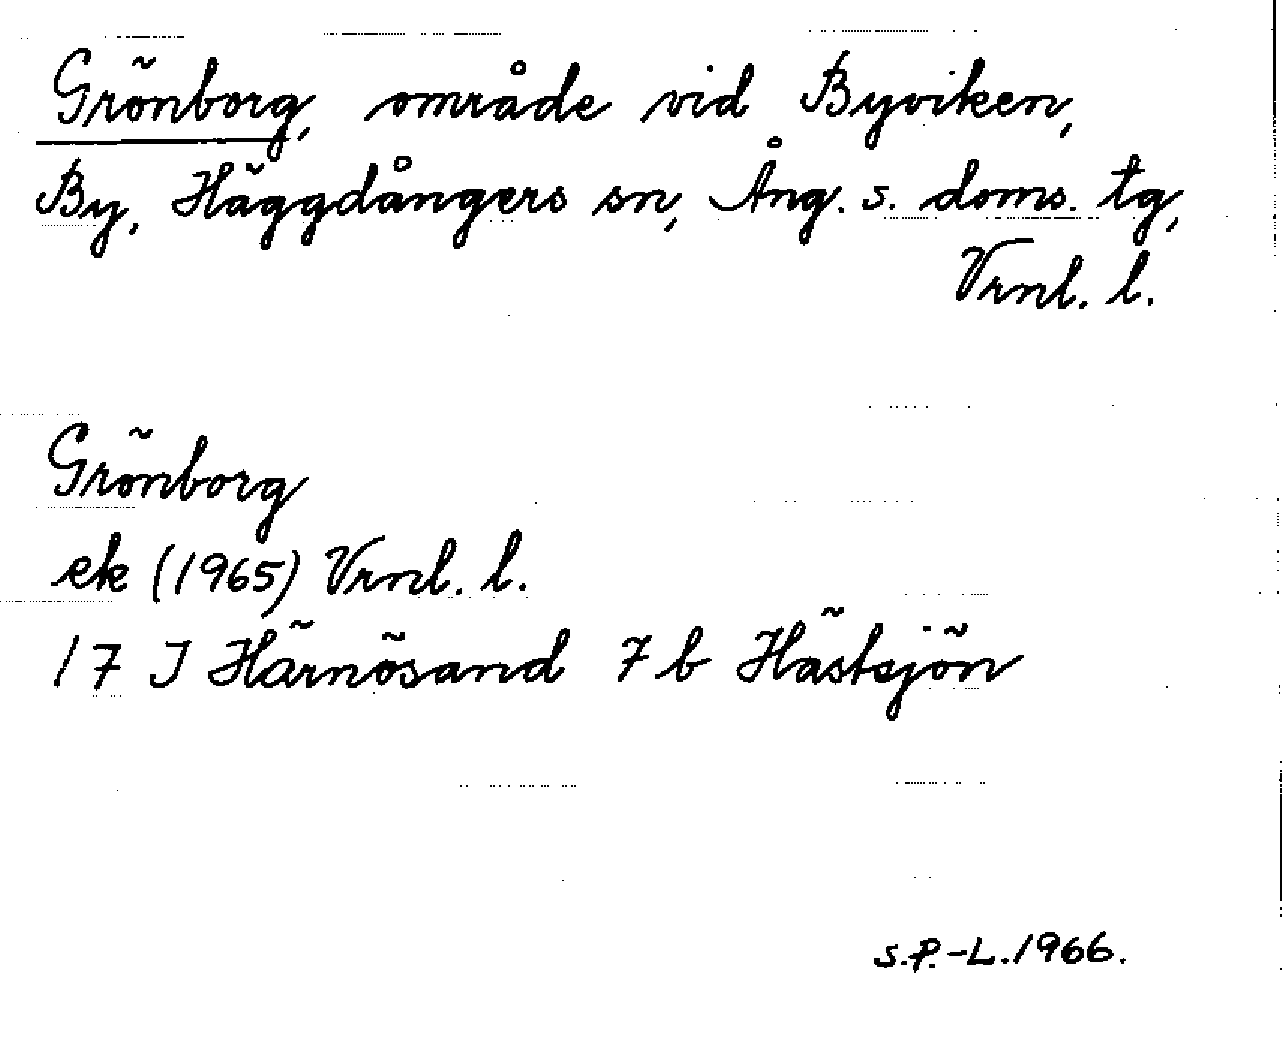 Grönborg, område vid Byviken,
By, Häggdångers sn, Ång. s. doms. tg,
Vrnl. l.
Grönborg
ek (1965) Vrnl. l.
17 J Härnösand 7 b Hästsjön
S.P.-L. 1966.